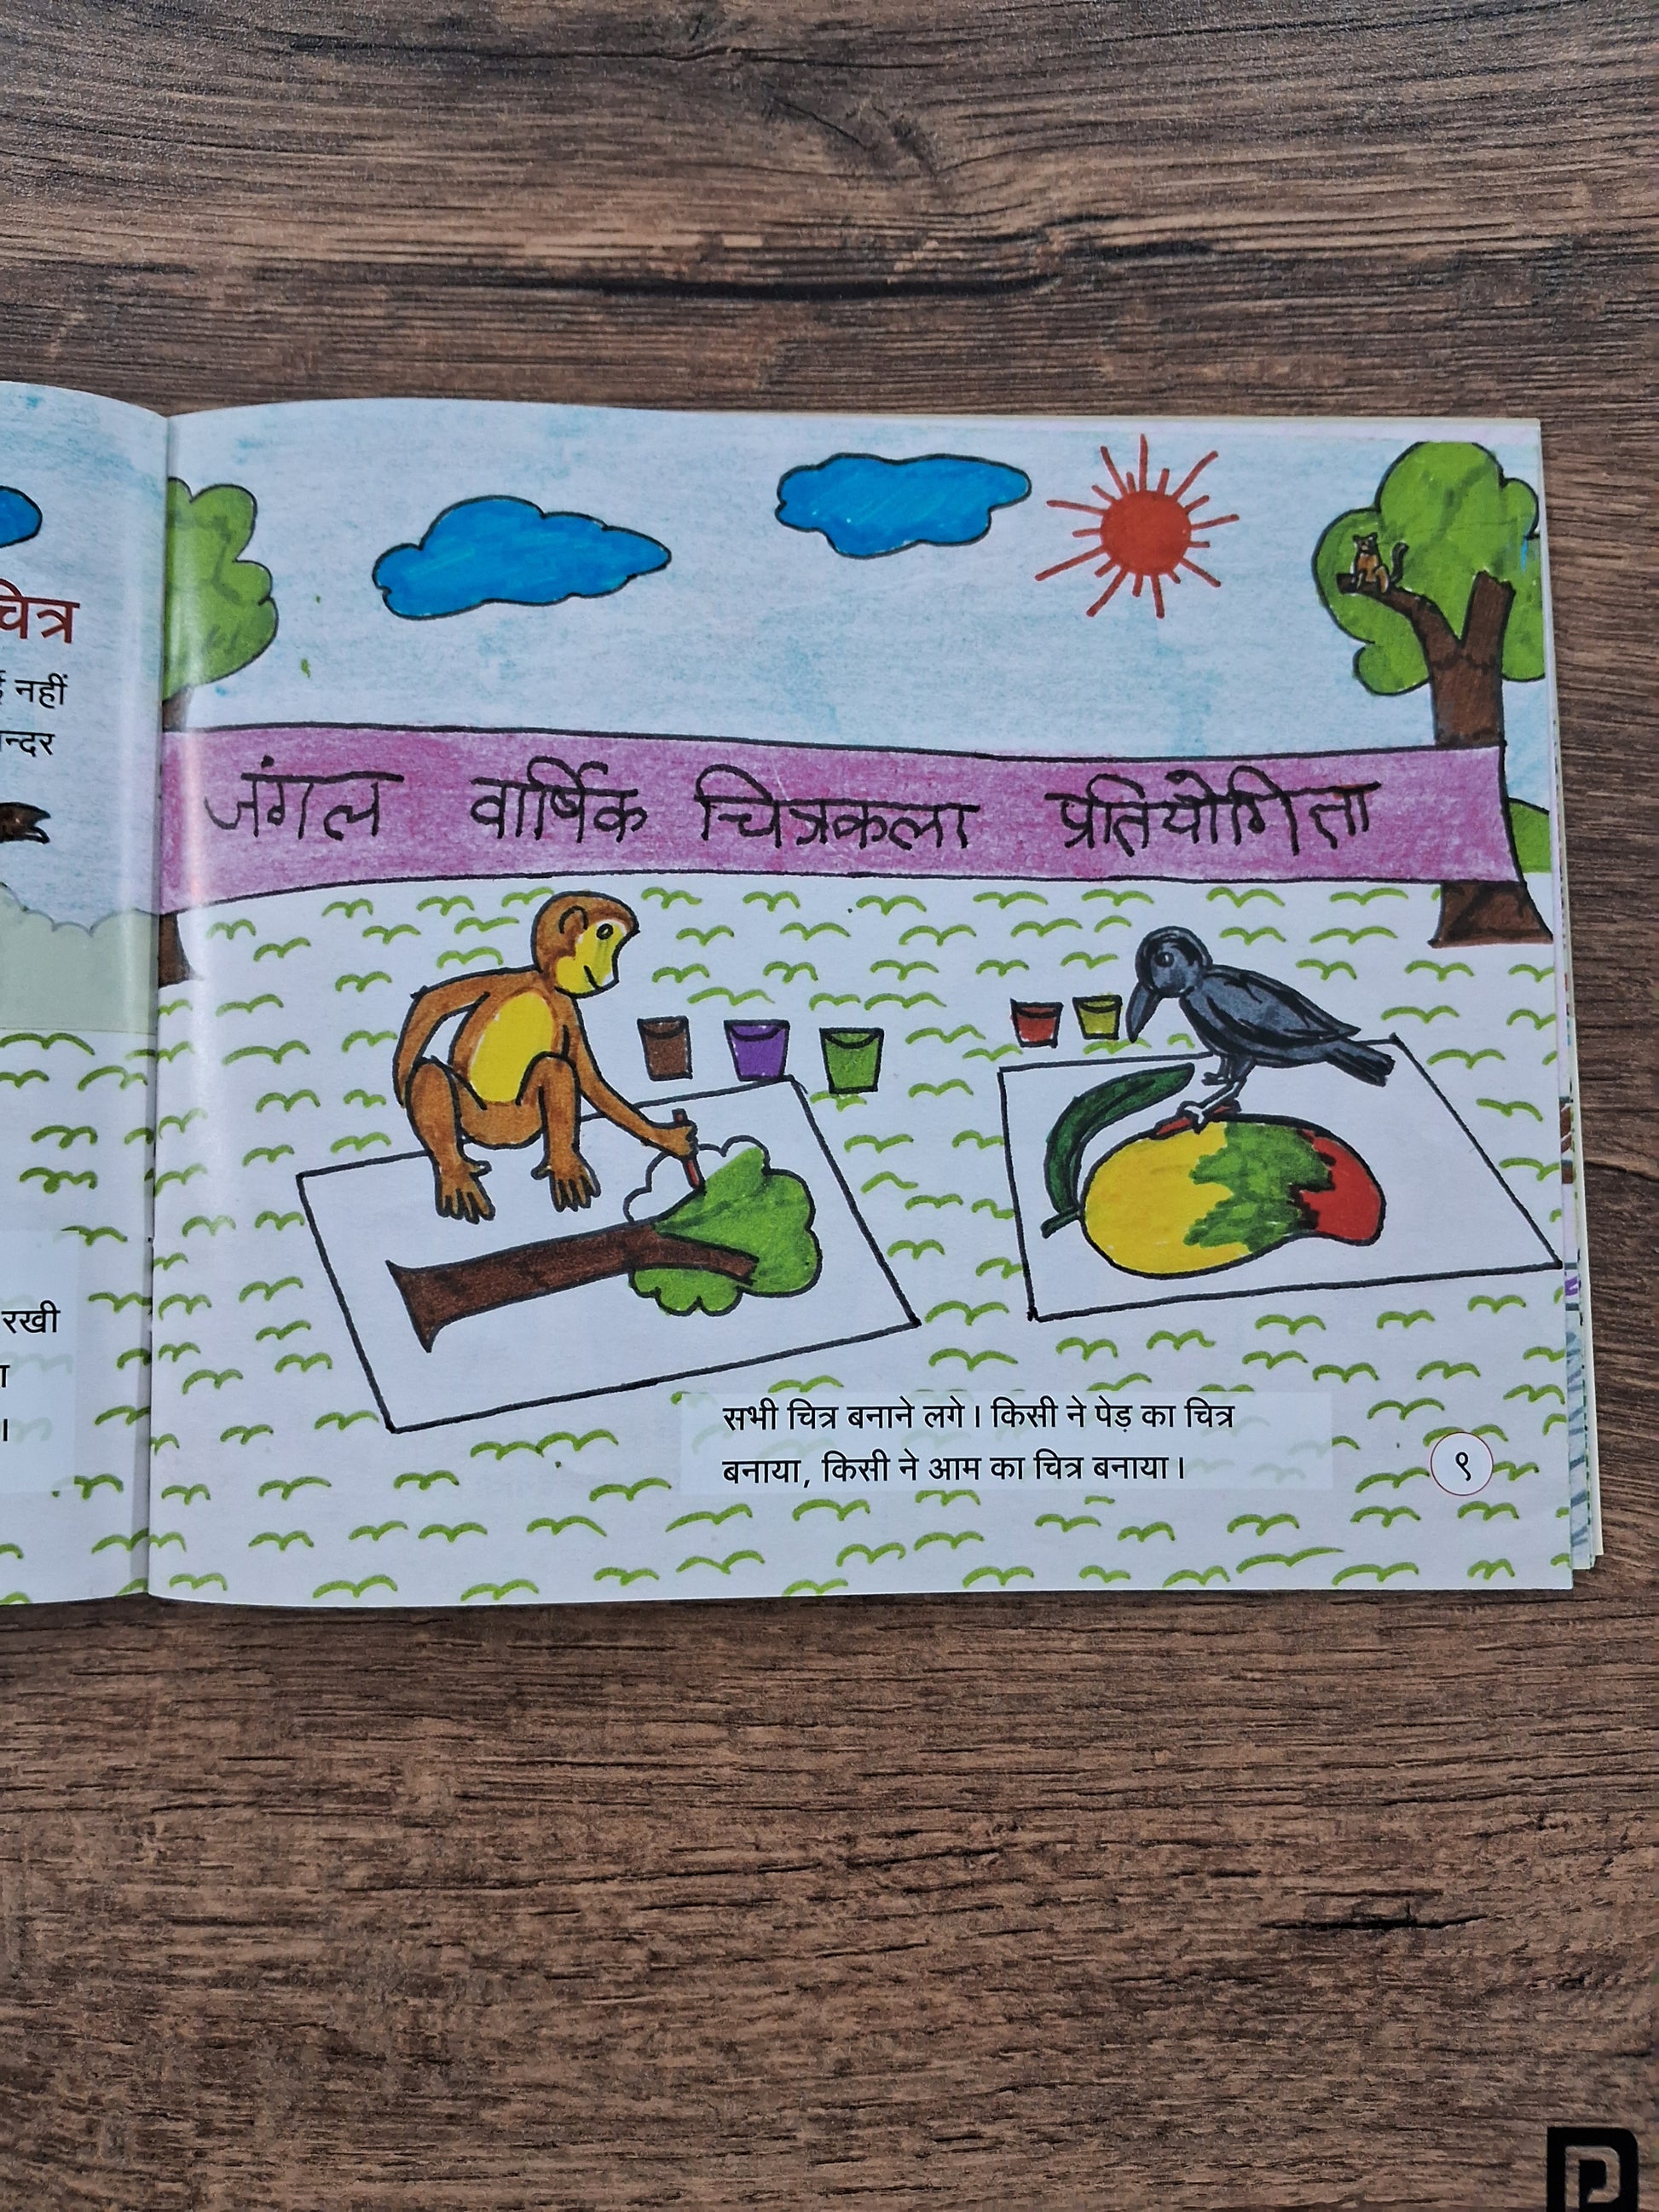 चित्र
नहीं
रखी
जंगल वार्षिक चित्रकला प्रतियोगिता
सभी चित्र बनाने लगे। किसी ने पेड़ का चित्र
बनाया, किसी ने आम का चित्र बनाया।
९